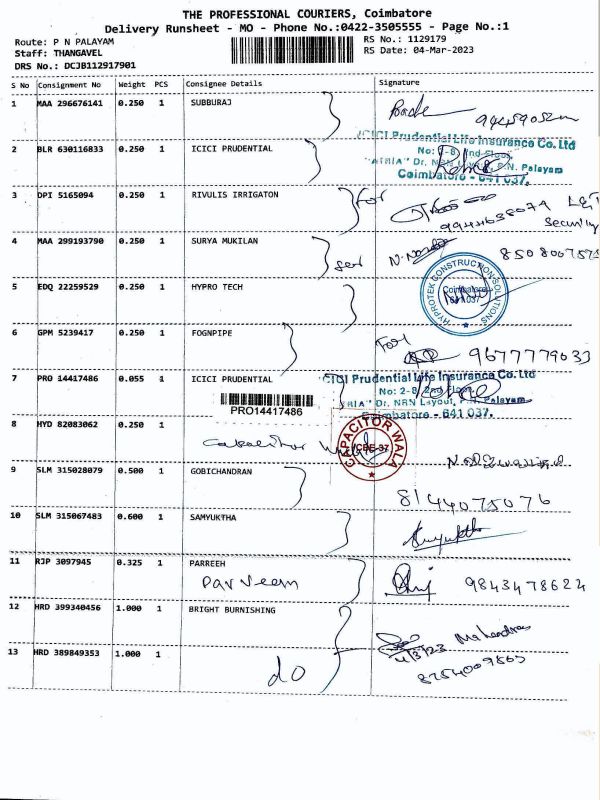 THE PROFESSIONAL COURIERS, Coimbatore
Delivery Runsheet - MO - Phone No.:0422-3505555 - Page No.:1
Route: P N PALAYAM
RS No.: 1129179
Staff: THANGAVEL
RS Date: 04-Mar-2023
DRS No.: DCJB112917901
S No Consignment No Weight PCS Consignee Details Signature
1 MAA 296676141 0.250 1 SUBBURAJ
2 BLR 630116833 0.250 1 ICICI PRUDENTIAL
ICICI Prudential Life Insurance Co. Ltd
No: 2-8, 2nd Floor,
"ATRIA" Dr. NRN Layout, P.N. Palayam
Coimbatore - 641 037.
3 DPI 5165094 0.250 1 RIVULIS IRRIGATON for
9944638079 L&T
Security
4 MAA 299193790 0.250 1 SURYA MUKILAN
8508007575
5 EDQ 22259529 0.250 1 HYPRO TECH
HYPROTEK CONSTRUCTION SOLUTIONS
Coimbatore
641 037
6 GPM 5239417 0.250 1 FOGNPIPE
For
9677779033
7 PRO 14417486 0.055 1 ICICI PRUDENTIAL
ICICI Prudential Life Insurance Co. Ltd
No: 2-8, 2nd Floor,
"ATRIA" Dr. NRN Layout, P.N. Palayam
Coimbatore - 641 037.
PRO14417486
8 HYD 82083062 0.250 1
CAPACITOR WALA
CBE-37
9 SLM 315028079 0.500 1 GOBICHANDRAN
8144075076
10 SLM 315067483 0.600 1 SAMYUKTHA
11 RJP 3097945 0.325 1 PARREEH
Parveen
9843478624
12 HRD 399340456 1.000 1 BRIGHT BURNISHING
Mahendran
4/3/23
13 HRD 389849353 1.000 1
do